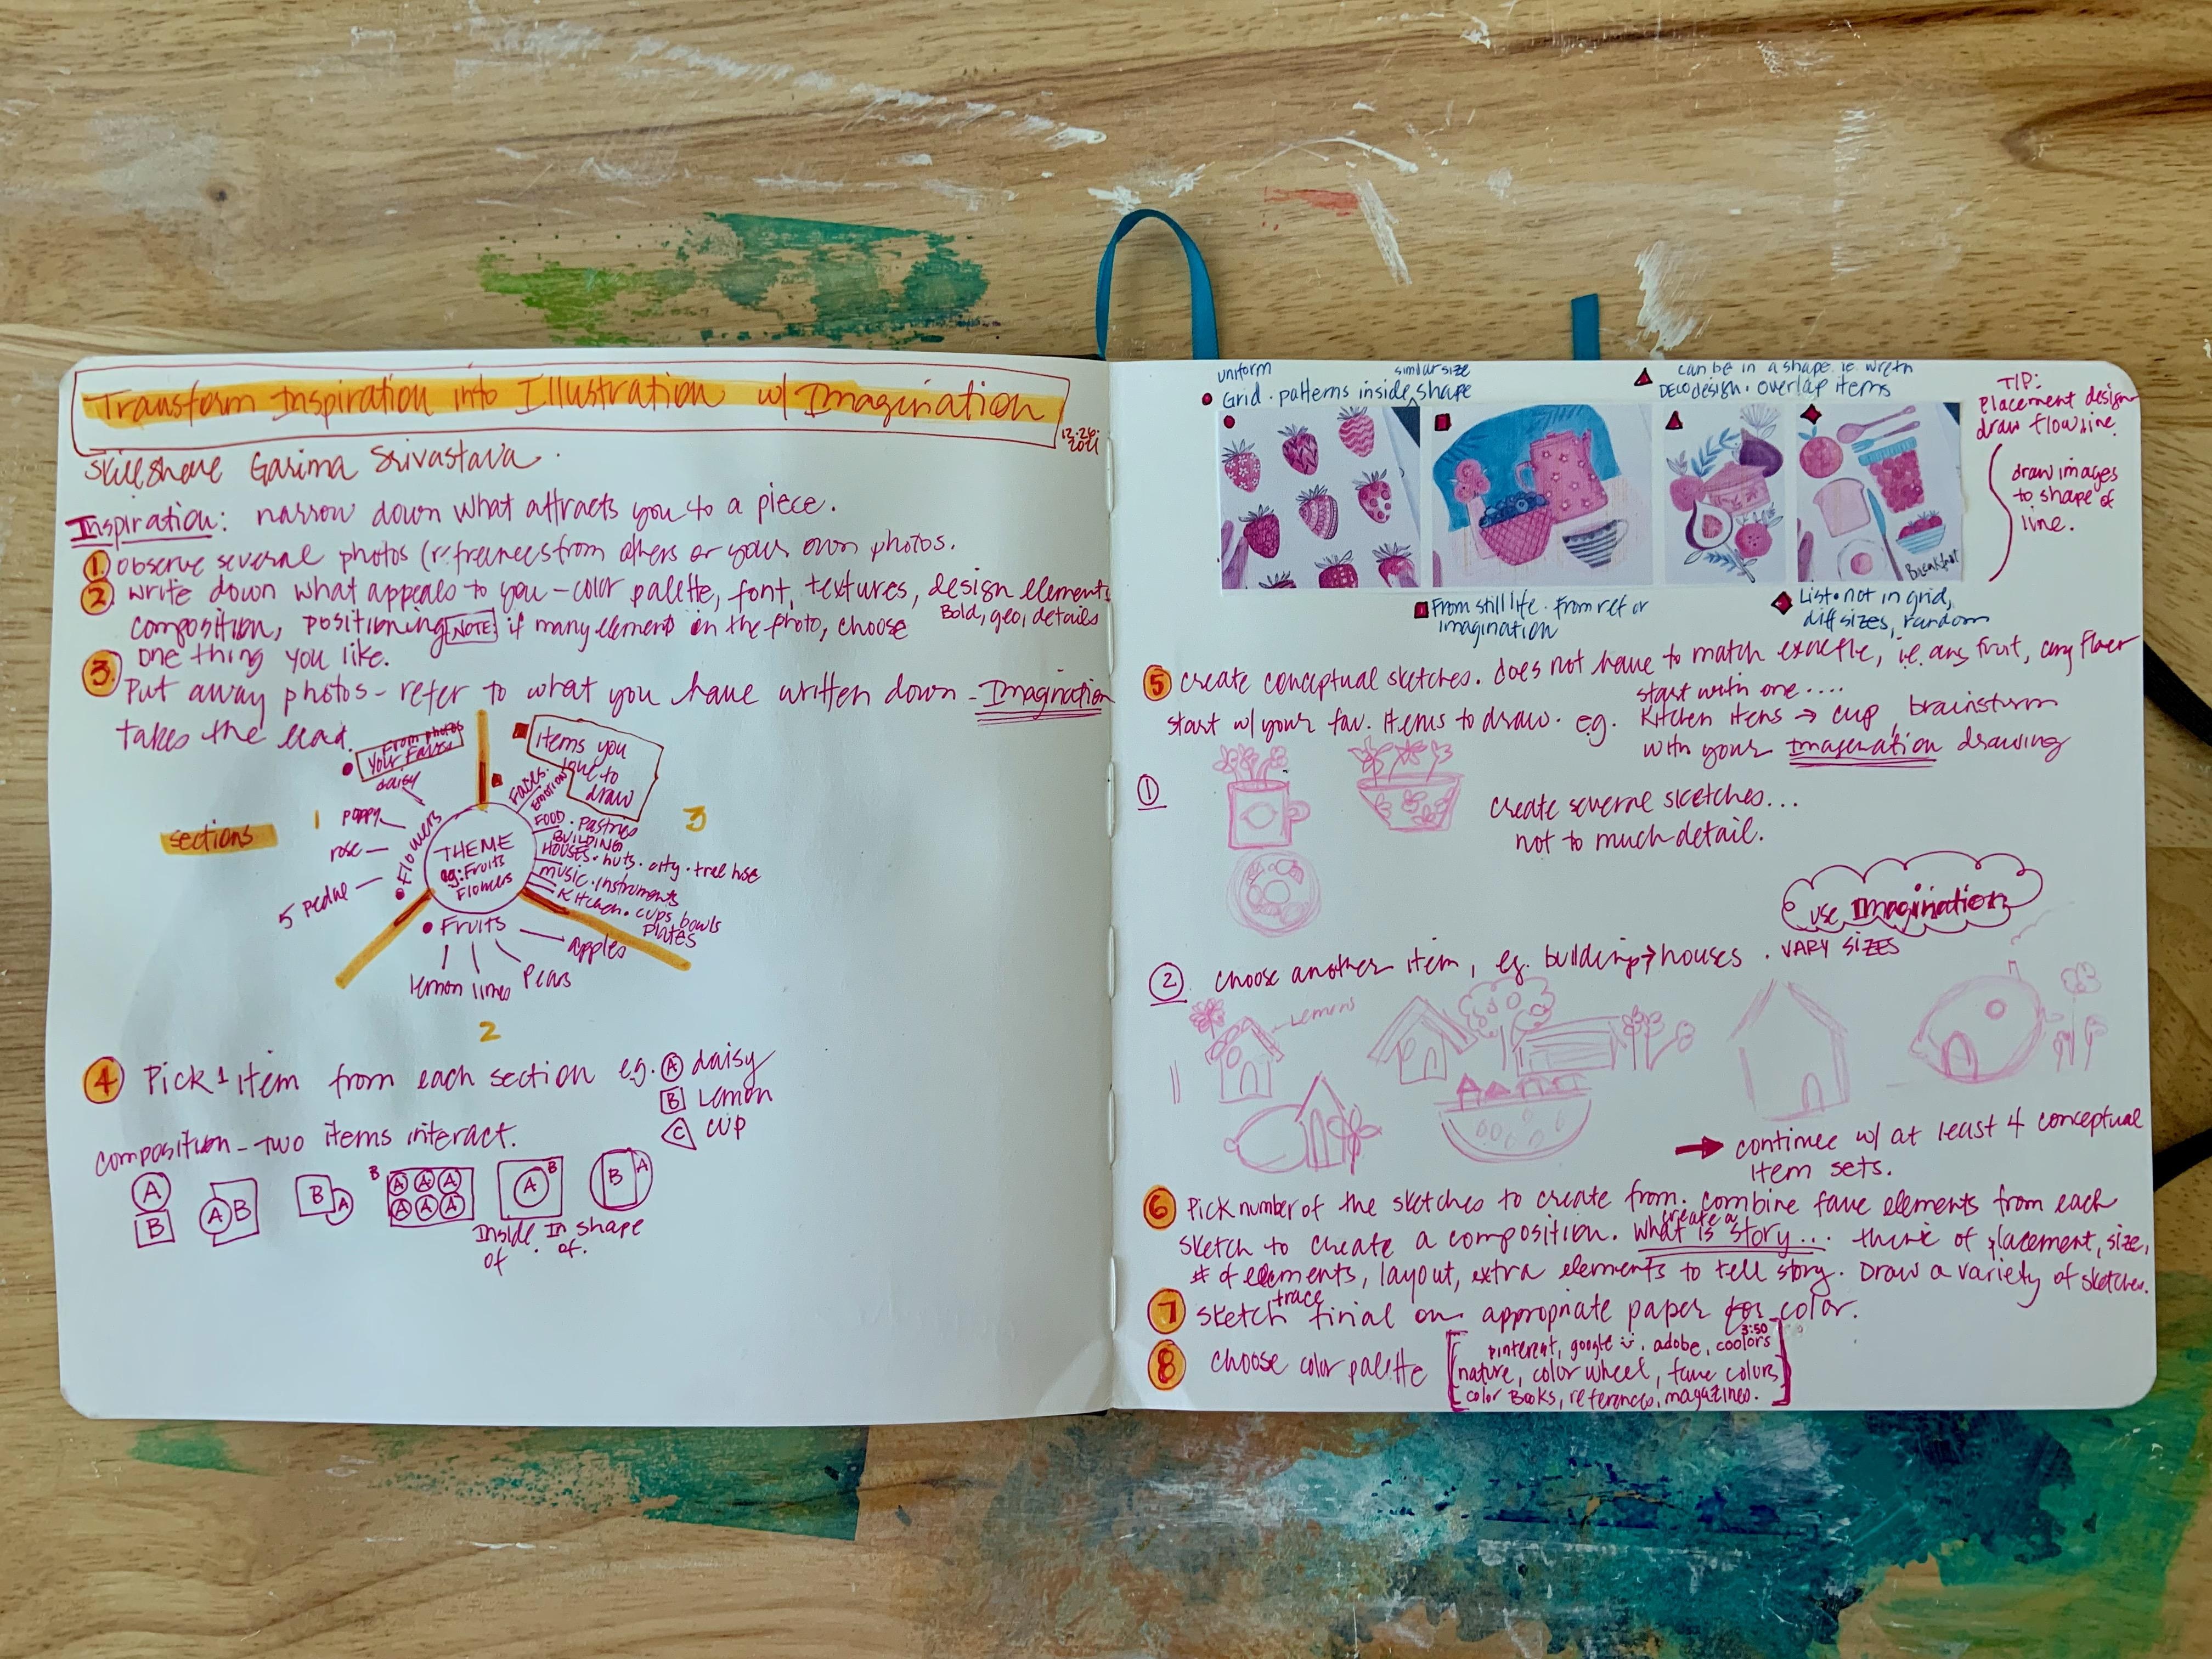 Transform Inspiration into Illustration w/ Imagination
12.26.2021
Skillshare Garima Srivastava.
Inspiration: narrow down what attracts you to a piece.
1. Observe several photos (refrences from others or your own photos.
2 write down what appeals to you - color palette, font, textures, design elements
Bold, geo, details
composition, positioning NOTE: if many elements in the photo, choose
one thing you like.
3. Put away photos - refer to what you have written down - Imagination
takes the lead.
sections
1
From photos
Your Faves
daisy
poppy
rose
5 pedal
Flowers
THEME
eg: Fruits
Flowers
Items you
love to
draw
Faces.
Emotion
FOOD. Pastries
BUILDING
HOUSES. huts. city. tree hse
music. instruments
Kitchen. cups bowls
plates
3
Fruits
lemon limes pears apples
2
4 Pick 1 item from each section e.g. A daisy
B Lemon
C cup
composition - two items interact.
A
B
A B
B A
B
A A A
A A A
A B
B A
Inside of.
In shape of.
uniform
similar size
Grid. patterns inside shape
can be in a shape i.e. wreth
DECO design. overlap items
TIP:
placement design
draw flowline.
draw images
to shape of
line.
Breakfast
From still life. From ref or
imagination
List. not in grid,
diff sizes, random
5 create conceptual sketches. does not have to match exactle, i.e. any fruit, any flower
start with one....
start w/ your fav. items to draw. e.g. Kitchen itens → cup, brainstorm
with your Imagination drawing
1
create several sketches...
not to much detail.
use Imagination
2 choose another item, eg. building → houses. VARY SIZES
Lemons
→ continue w/ at least 4 conceptual
item sets.
6 Pick number of the sketches to create from. combine fave elements from each
sketch to create a composition. What is story... think of placement, size,
create a
# of elements, layout, extra elements to tell story. Draw a variety of sketches.
7 sketch final on appropriate paper for color.
trace
3:50
8 choose color palette
pinterest, google, adobe, coolors
nature, color wheel, fave colors
color Books, references, magazines.